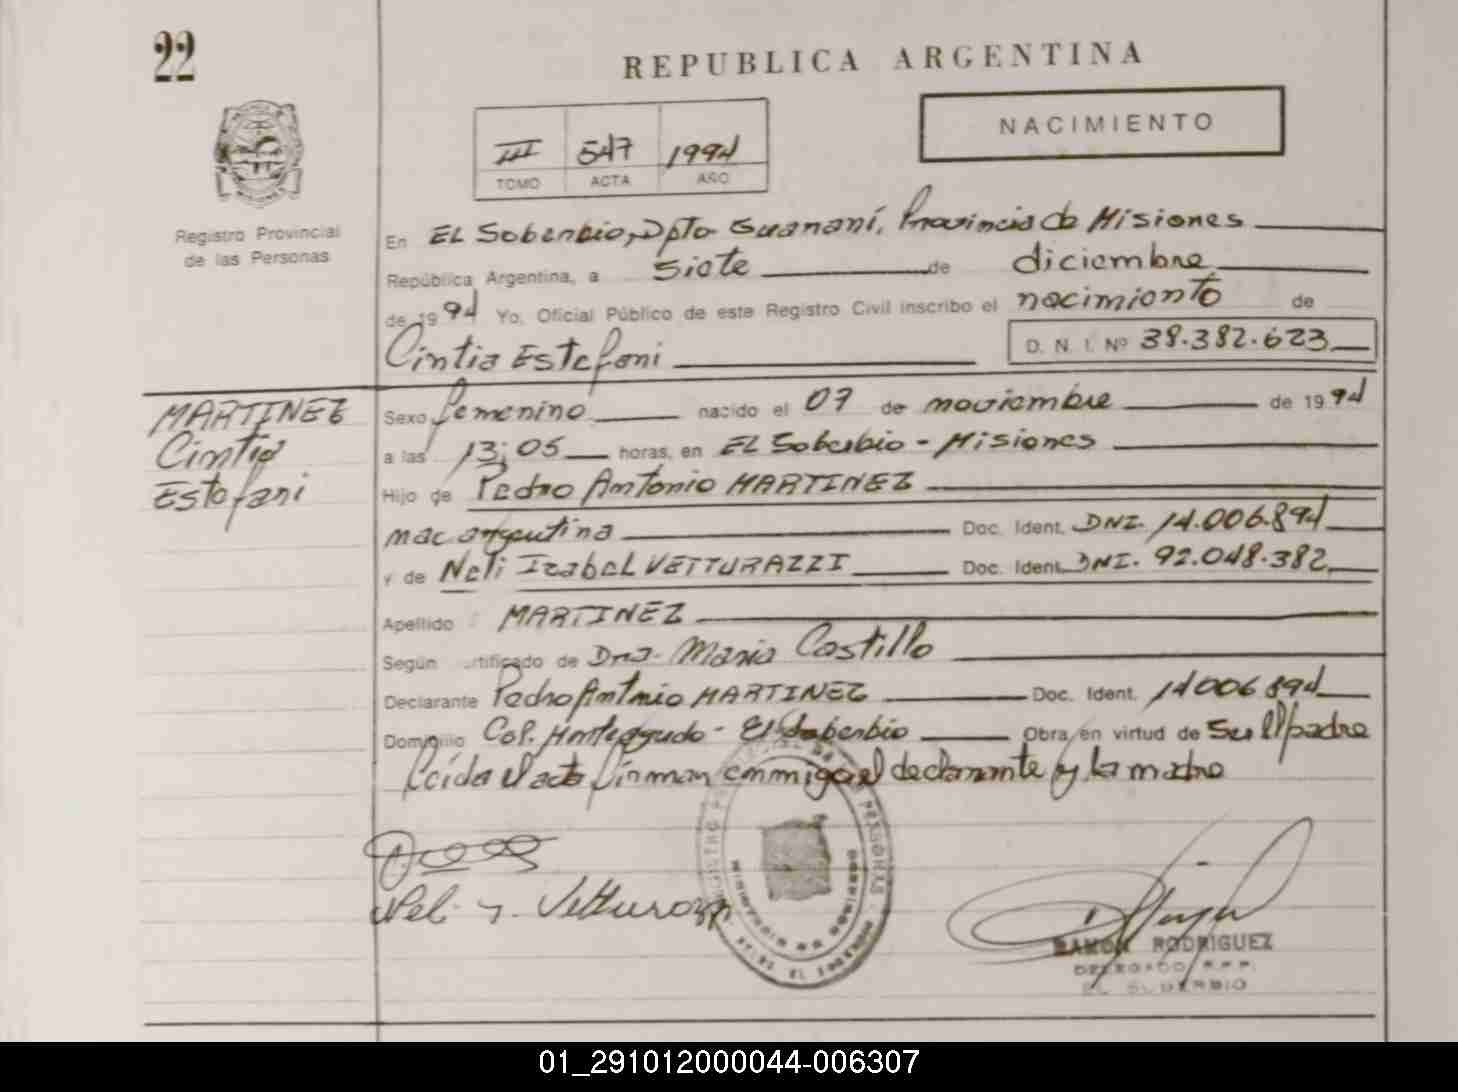 22
REPUBLICA ARGENTINA
NACIMIENTO
III 547 1994
TOMO ACTA AÑO
Registro Provincial
de las Personas
En EL Soberbio, Dpto Guaraní, Provincia de Misiones
República Argentina, a siete de diciembre
de 1994 Yo, Oficial Público de este Registro Civil inscribo el nacimiento de
Cintia Estefani D. N. I. Nº 38.382.623
MARTINEZ
Cintia
Estefani
Sexo femenino nacido el 07 de noviembre de 1994
a las 13:05 horas, en EL Soberbio - Misiones
Hijo de Pedro Antonio MARTINEZ
nac argentina Doc. Ident. DNI. 14.006.894
y de Neli Izabel VETTURAZZI Doc. Ident. DNI. 92.048.382
Apellido MARTINEZ
Según certificado de Dra. Maria Castillo
Declarante Pedro Antonio MARTINEZ Doc. Ident. 14006894
Domicilio Col. Monteagudo - El Soberbio Obra en virtud de ser el padre
Leída el acta firman conmigo el declarante y la madre
Neli Y. Vetturazzi
RAMON RODRIGUEZ
DELEGADO R.P.P.
EL SOBERBIO
01_291012000044-006307